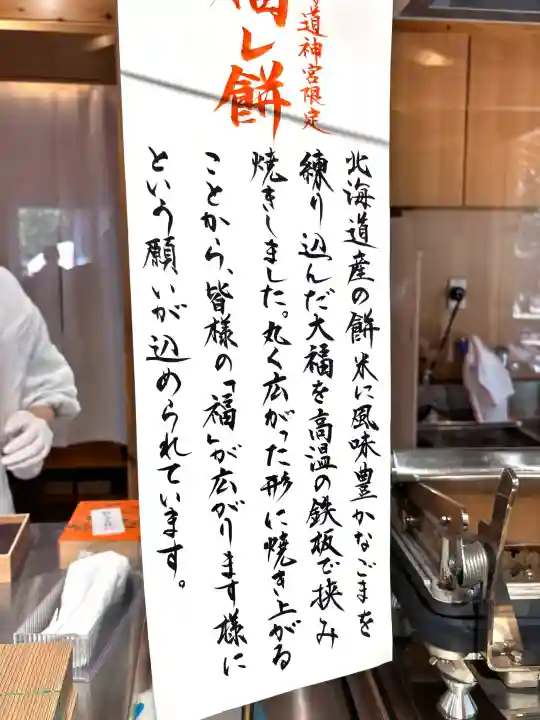 道神宮限定
福し餅
北海道産の餅米に風味豊かなごまを
練り込んだ大福を高温の鉄板で挟み
焼きしました。丸く広がった形に焼き上がる
ことから、皆様の「福」が広がります様に
という願いが込められています。